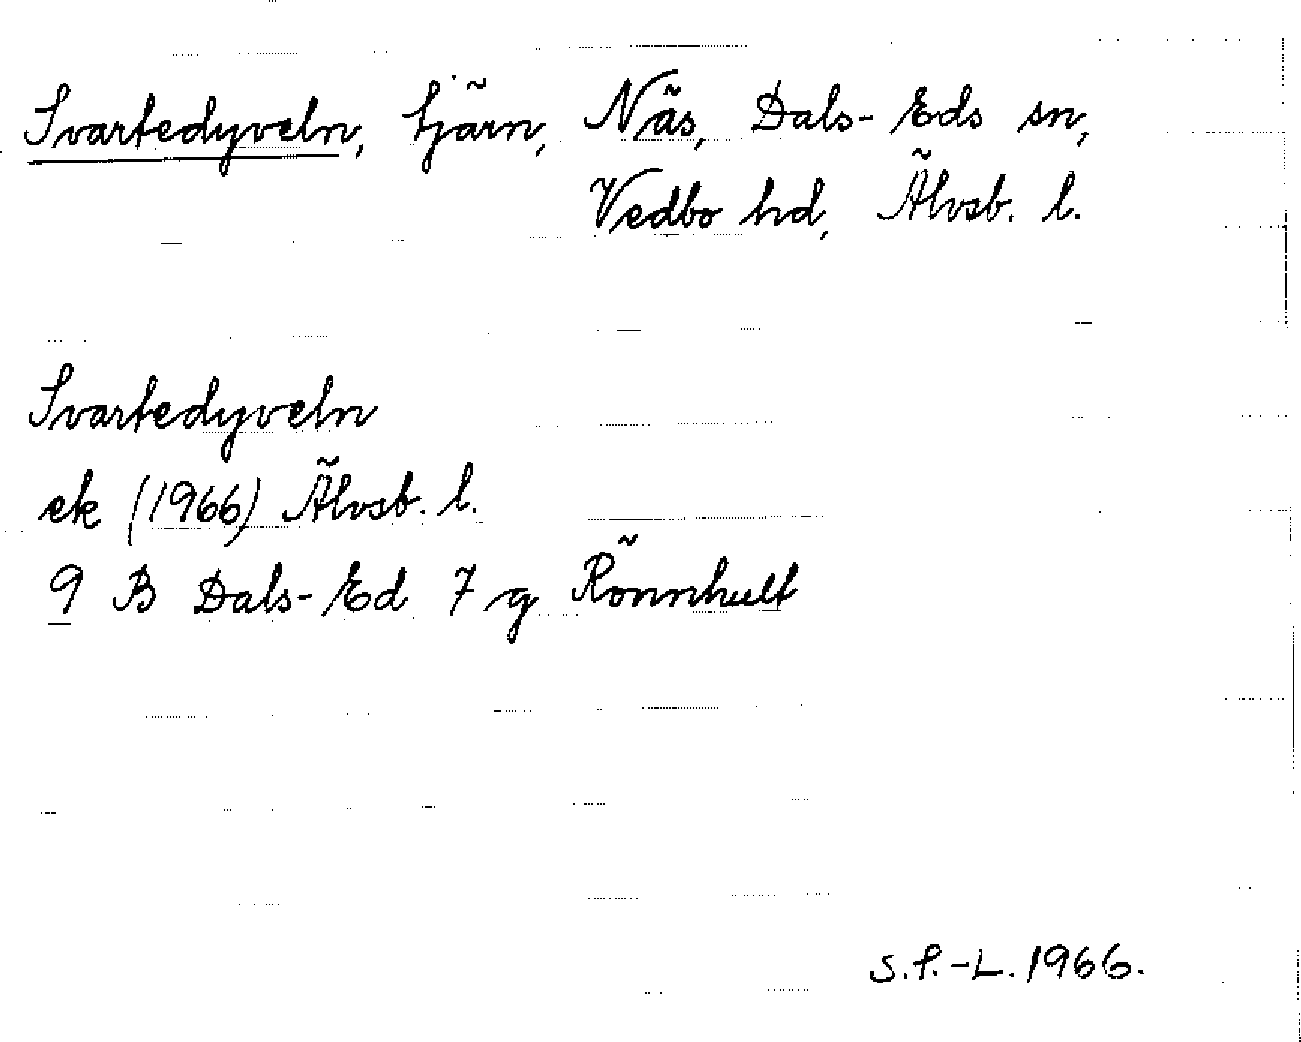 Svartedyveln, tjärn, Näs, Dals-Eds sn,
Vedbo hd, Älvsb. l.
Svartedyveln
ek (1966) Älvsb. l.
9 B Dals-Ed 7 g Rönnhult
S.P.-L. 1966.